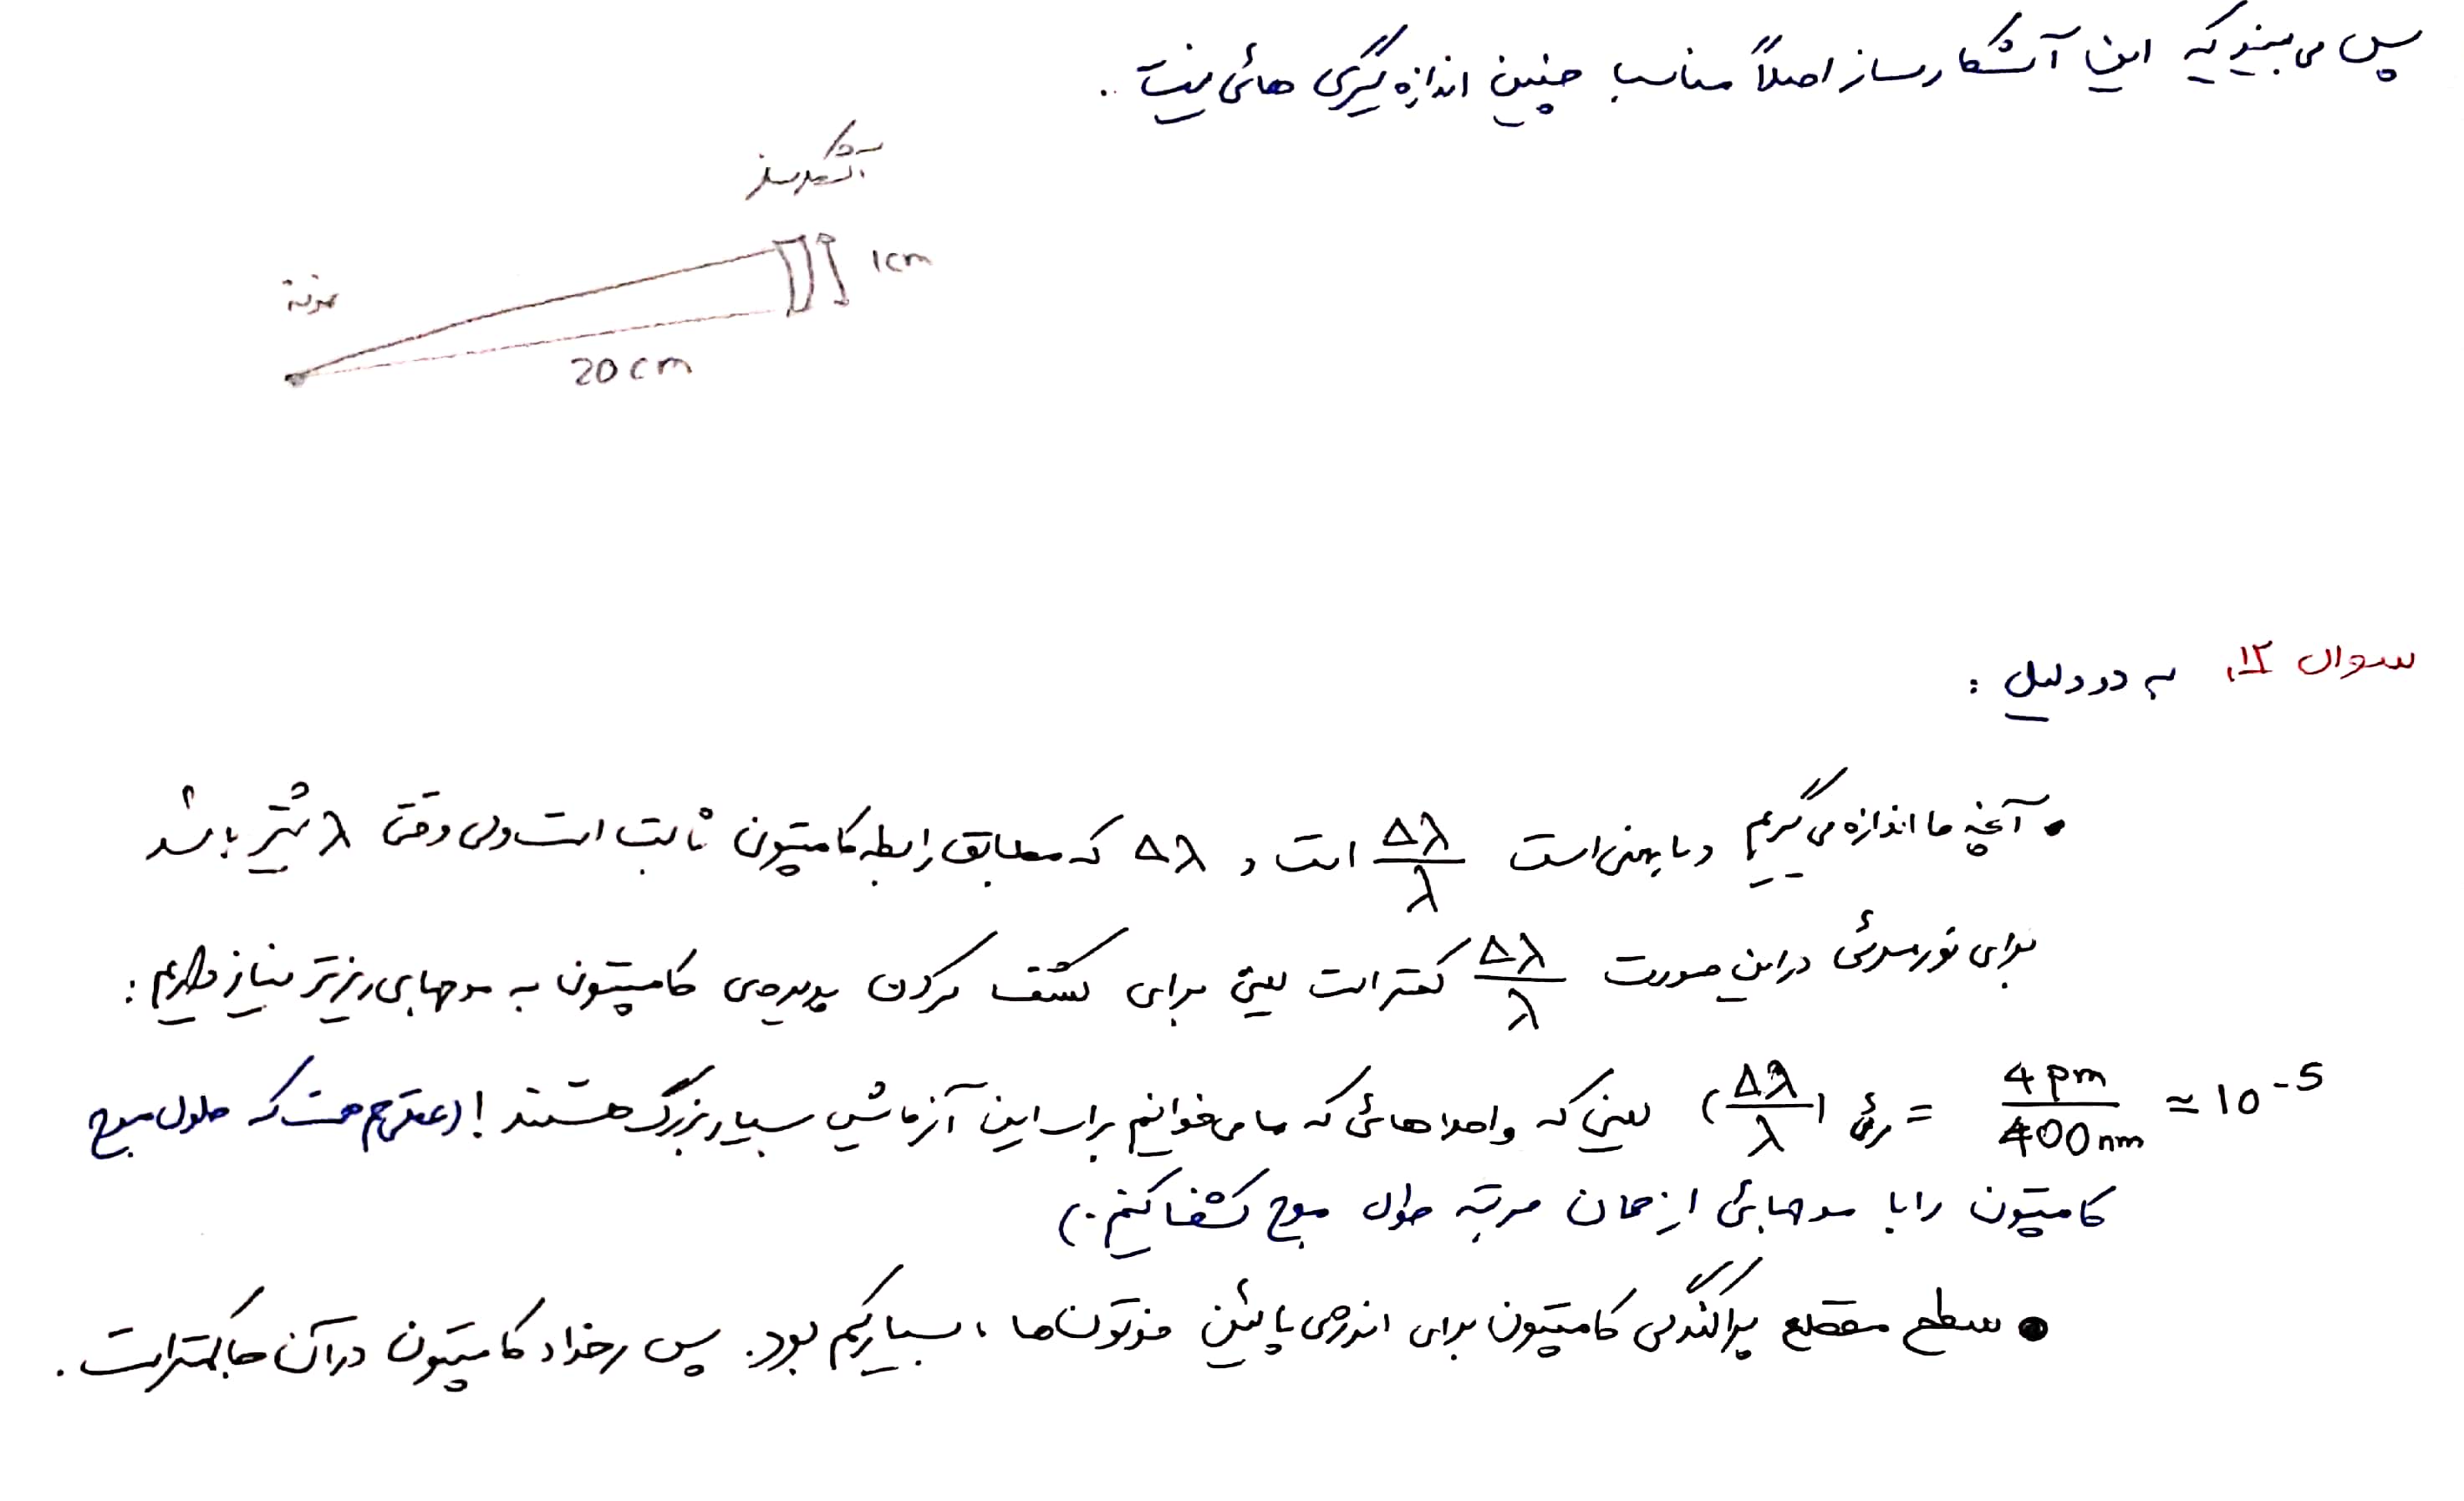 پس می‌بینید که این آشکارساز اصلاً مناسب چنین اندازه‌گیری هائی نیست.
آشکارساز
نمونه
1cm
20cm
سوال ۱۲. به دو دلیل :
• آنچه ما اندازه می‌گیریم و با بهتر است Δλ/λ است و Δλ که مطابق رابطه کامپتون ثابت است ولی وقتی λ بیشتر باشد
برای نور مرئی در این صورت Δλ/λ کمتر است یعنی برای کشف کردن پدیده‌ی کامپتون به موجهای ریزتر نیاز داریم :
(Δλ/λ) مرئی = 4pm/400nm ≈ 10^-5 یعنی که واحدهائی که ما می‌خوانیم برای این آزمایش بسیار بزرگ هستند ! (عقلی هم هست که طول موج
کامپتون را با موجهایی از همان مرتبه طول موج کشف کنیم.)
• سطح مقطع پراکندگی کامپتون برای انرژی پائین فوتون‌ها ، بسیار کم بود. پس رخداد کامپتون در آن‌ها کمتر است.